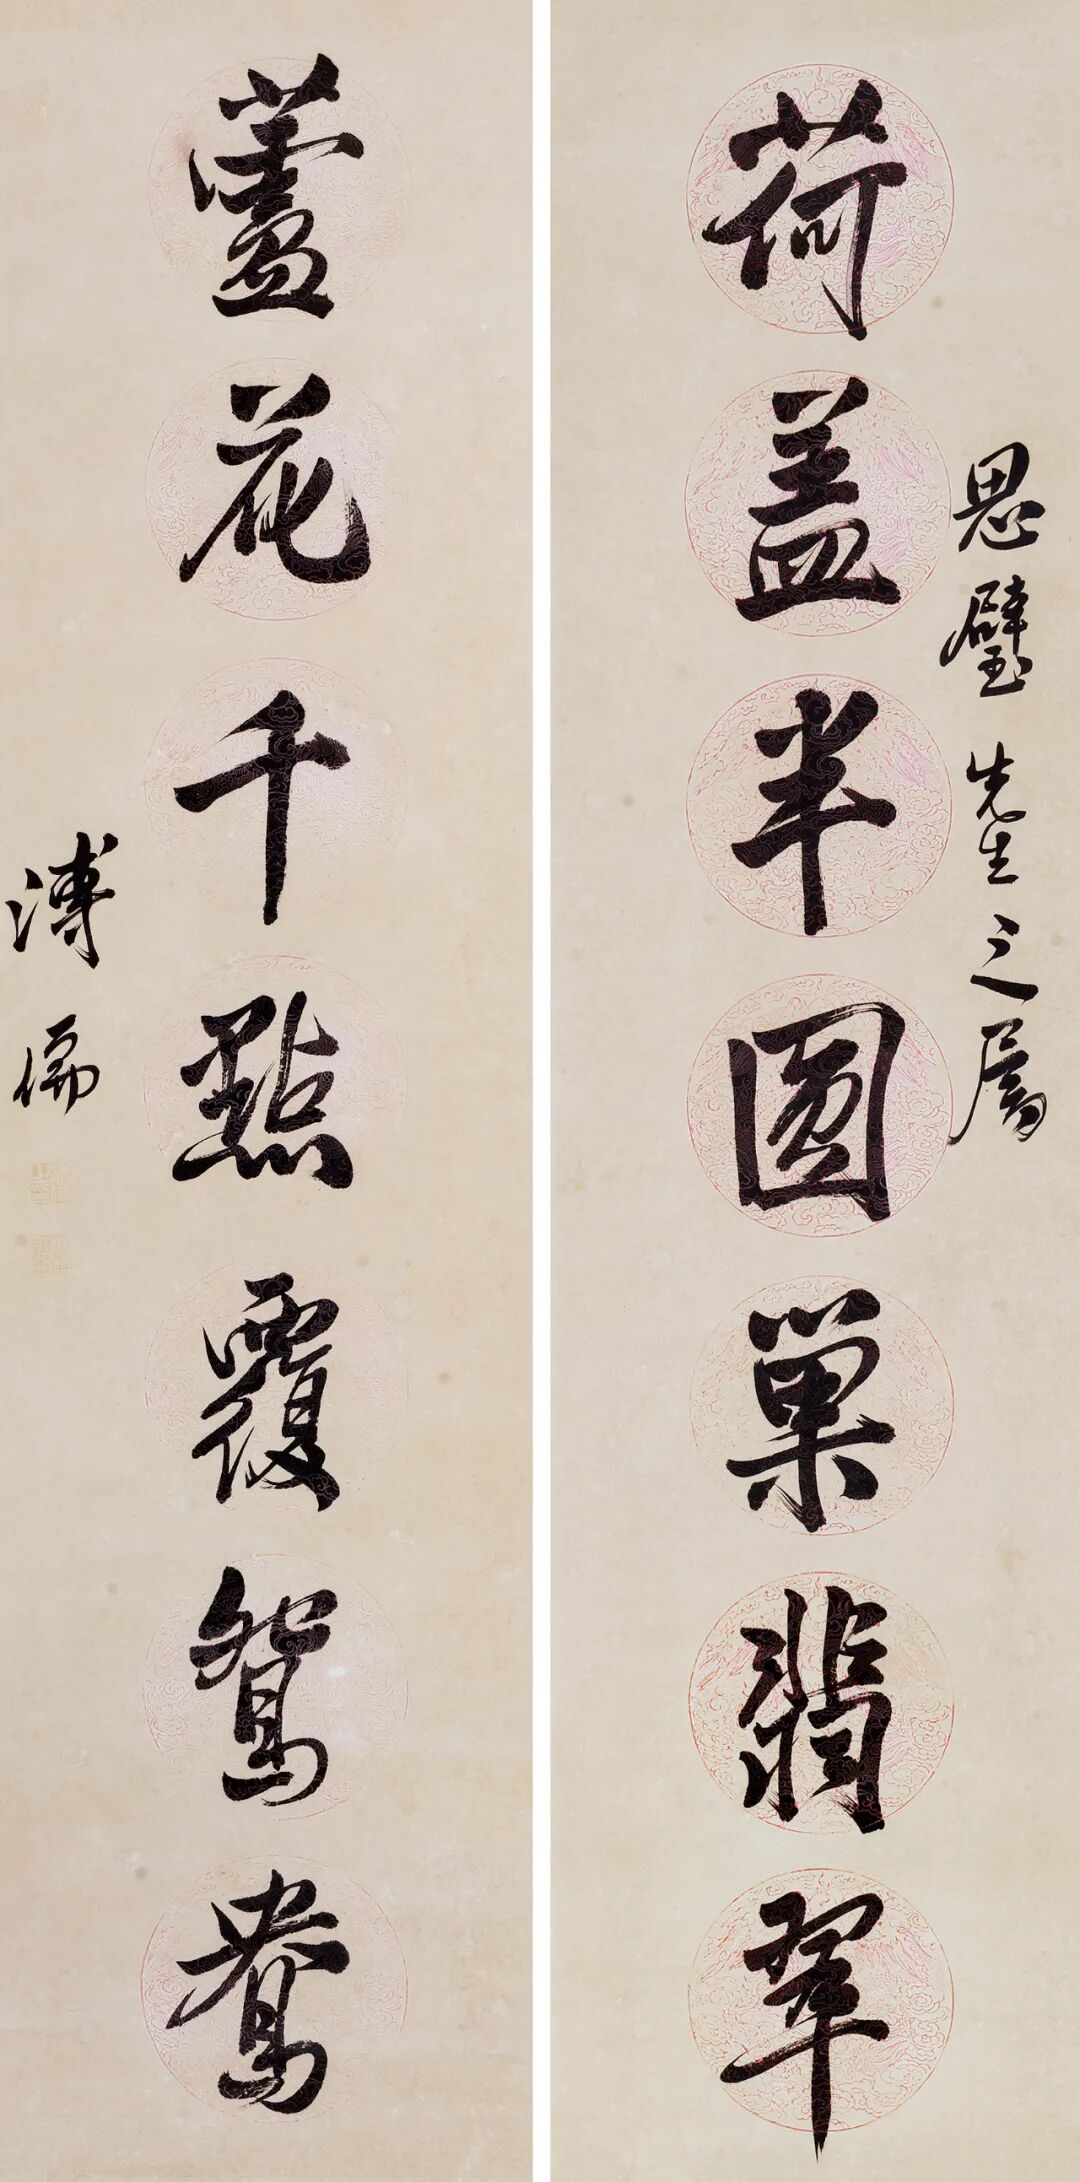 思璧先生之属
荷盖半圆巢翡翠
蘆花千點覆鴛鴦
溥儒